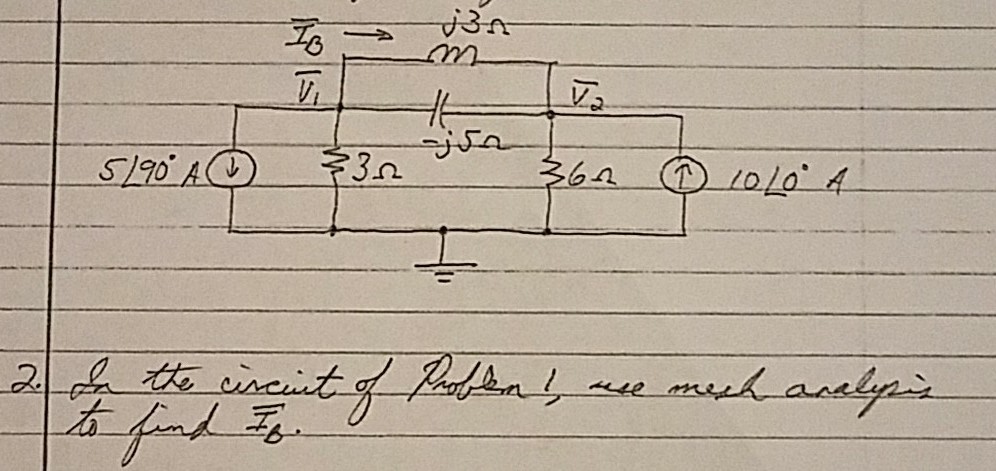 I̅B → j3Ω
V̅1 V̅2
-j5Ω
5∠90° A 3Ω 6Ω 10∠0° A
2. In the circuit of Problem 1, use mesh analysis
to find I̅B.